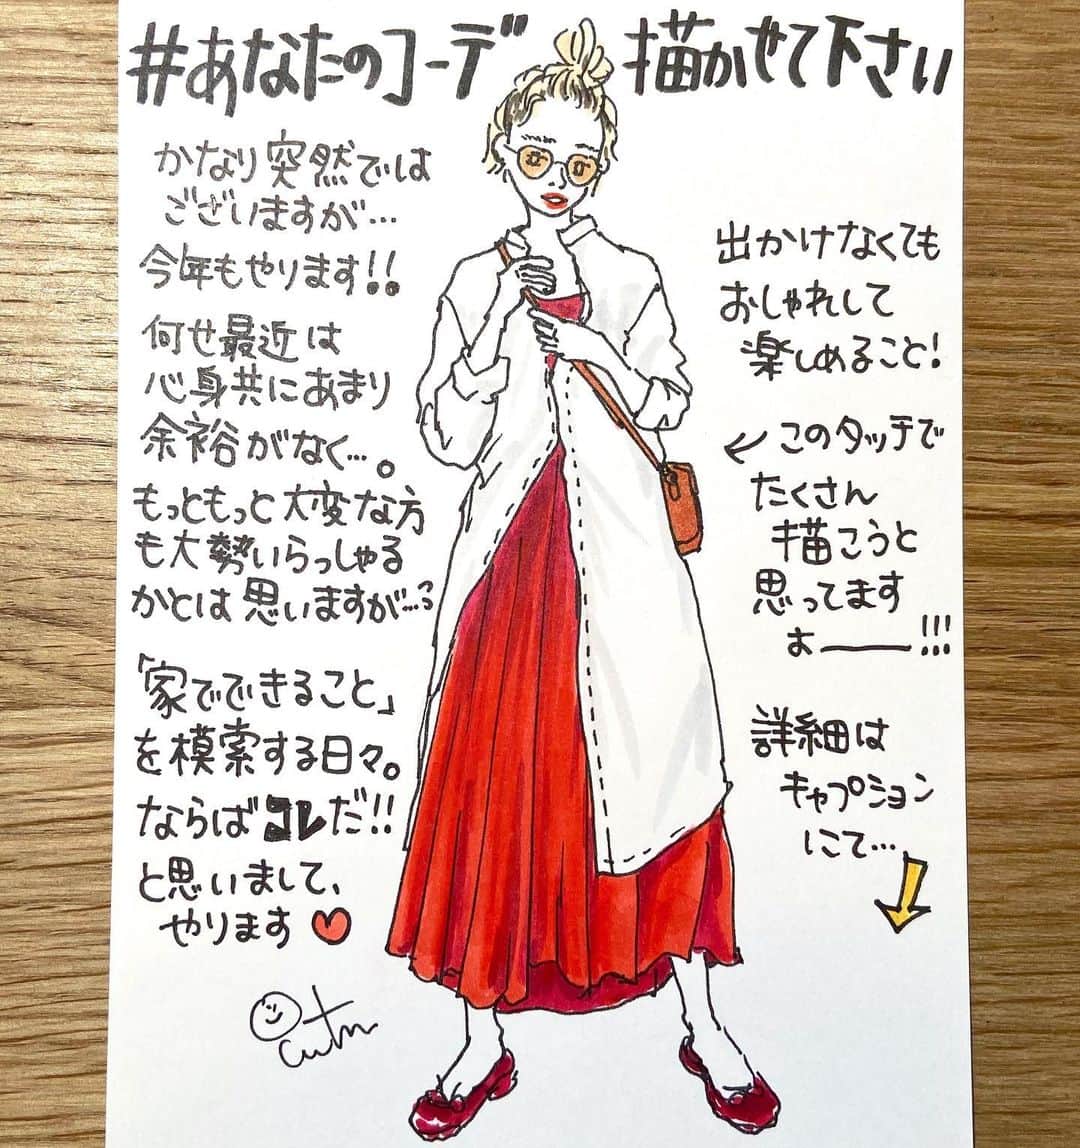 #あなたのコーデ 描かせて下さい
かなり突然では
ございますが…
今年もやります!!
何せ最近は
心身共にあまり
余裕がなく…。
もっともっと大変な方
も大勢いらっしゃる
かとは思いますが…
「家でできること」
を模索する日々。
ならばコレだ!!
と思いまして、
やります
出かけなくても
おしゃれして
楽しめること!
このタッチで
たくさん
描こうと
思ってます
ぉー!!!
詳細は
キャプション
にて…